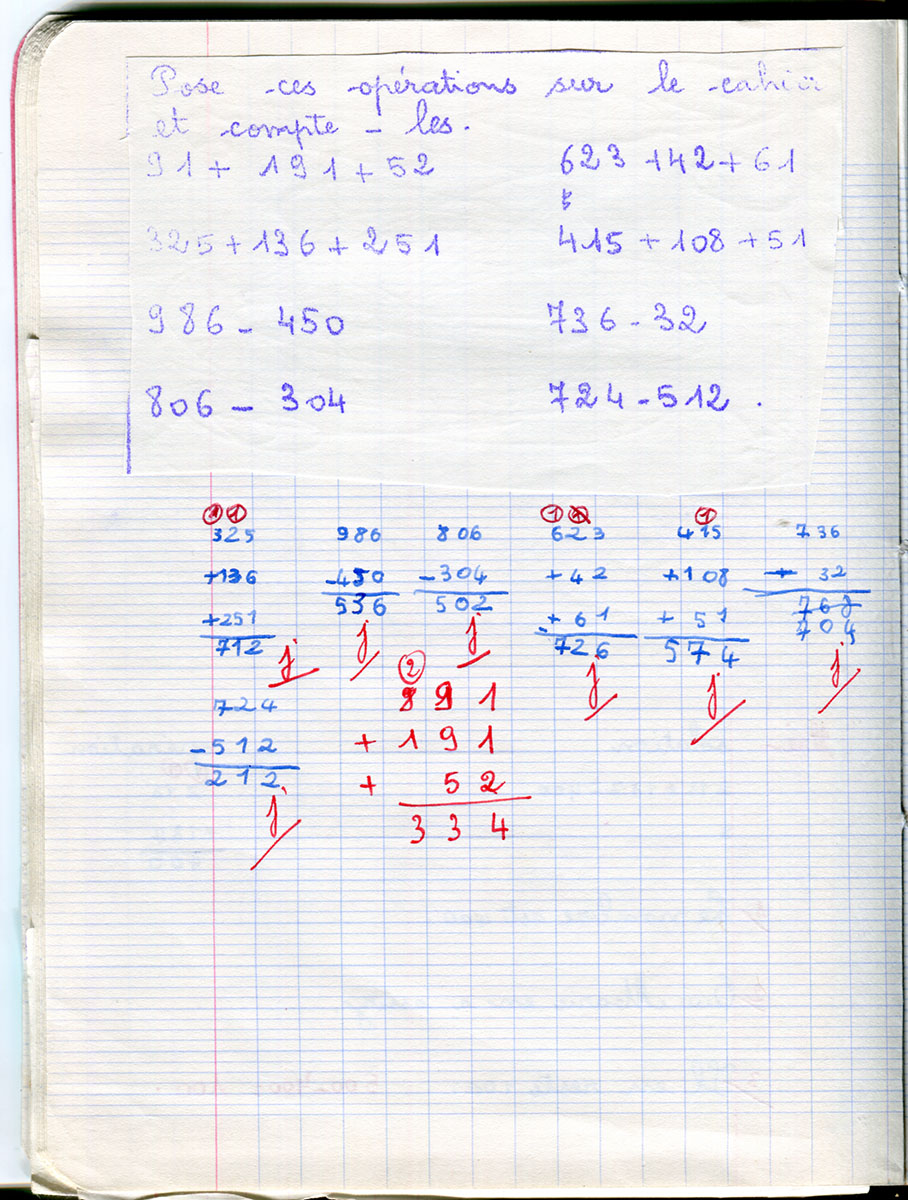 Pose ces opérations sur le cahier
et compte-les.
91 + 191 + 52 623 + 42 + 61
325 + 136 + 251 415 + 108 + 51
986 - 450 736 - 32
806 - 304 724 - 512 .
1 1 1 1 1
325 986 806 623 415 736
+136 -450 -304 +42 +108 - 32
+251 536 502 + 61 + 51 768
712 726 574 704
j j j j j j
2
724 891
-512 + 191
212 + 52
j 334